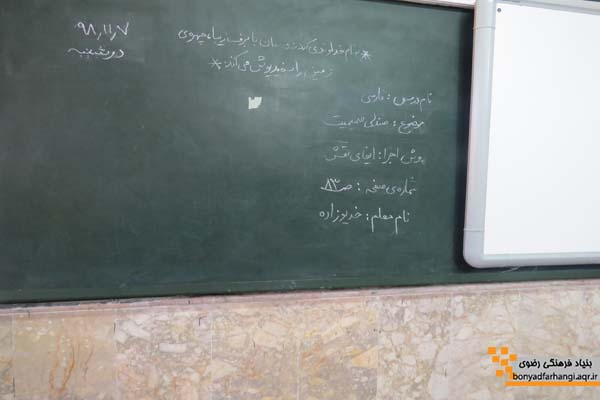 ۹۸,۱۱,۷
دوشنبه
* به نام خداوندی که زمستان با برف زیبا، چهره‌ی
زمین را سفیدپوش می‌کند. *
نام درس: فارسی
موضوع: صندلی صمیمیت
روش اجرا: ایفای نقش
شماره‌ی صفحه: ص ۸۳
نام معلم: خدیوزاده
بنیاد فرهنگی رضوی
bonyadfarhangi.aqr.ir